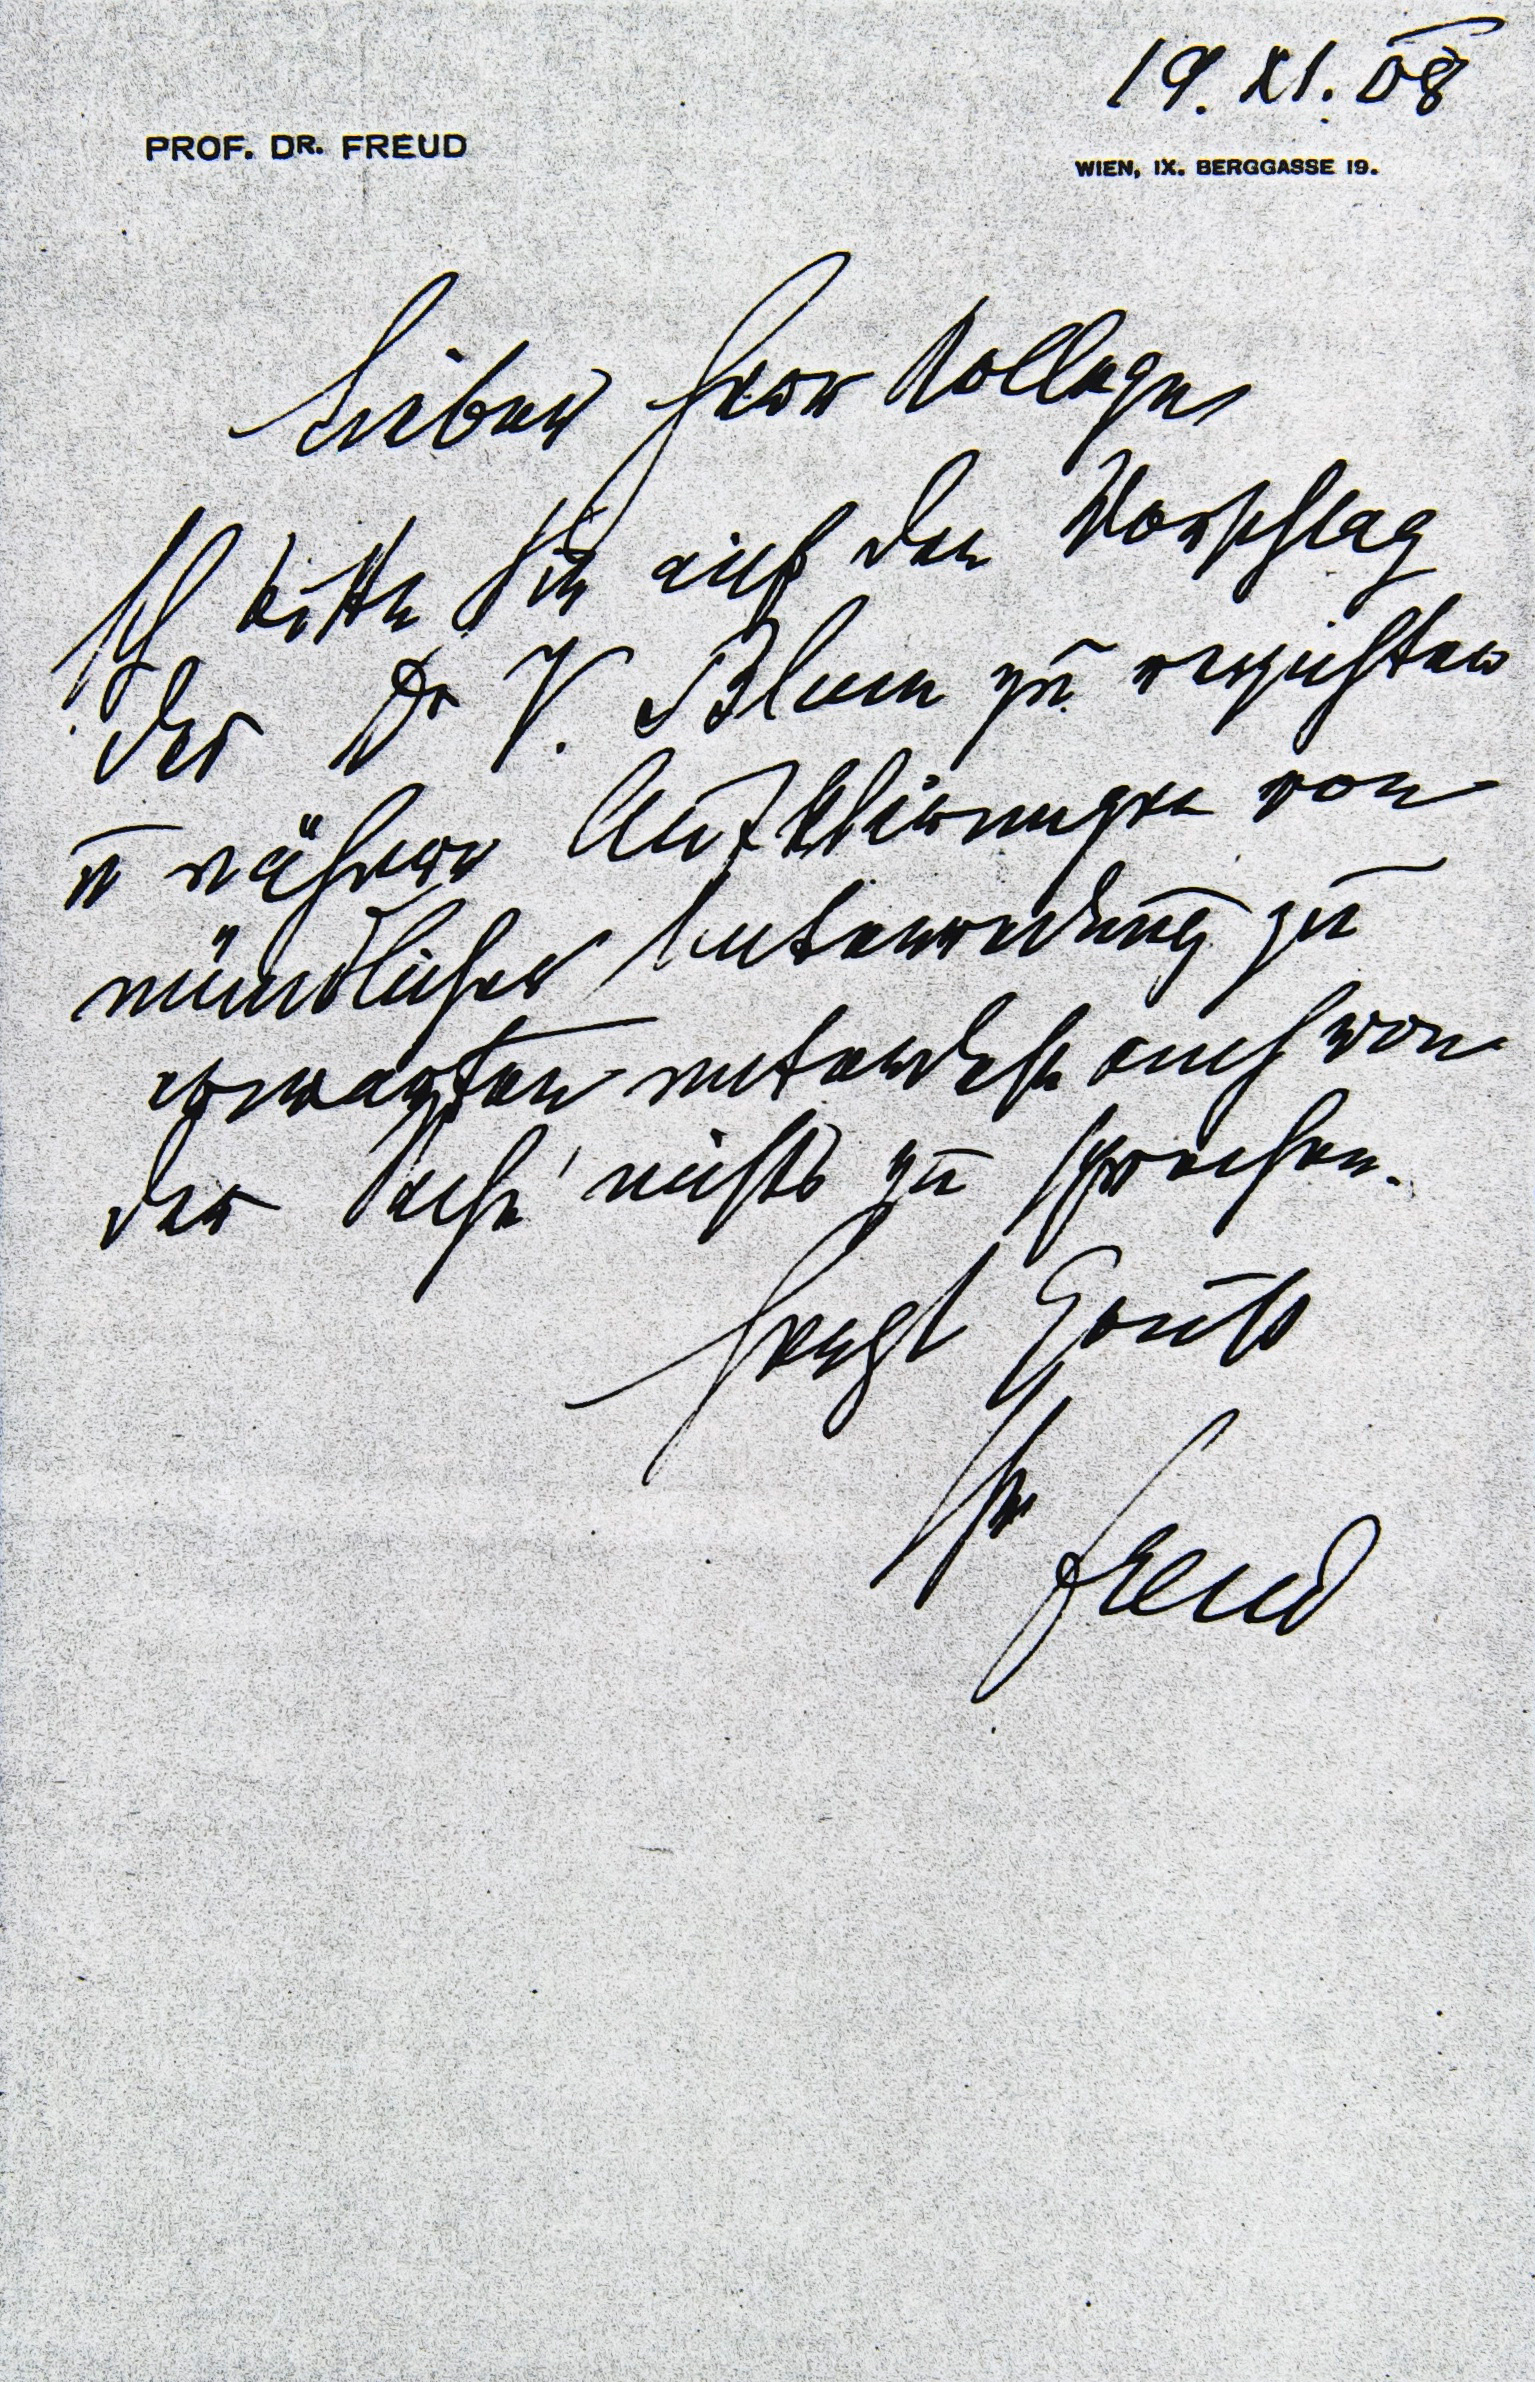 19. XI. 08
PROF. DR. FREUD
WIEN, IX. BERGGASSE 19.
Lieber Herr Kollege
Ich bitte Sie auf den Vorschlag
des Dr V. Blum zu verzichten
u nähere Aufklärungen von
mündlicher Unterredung zu
erwarten unterdeß auch von
der Sache nichts zu sprechen.
Herzl Gruß
Ihr
Freud